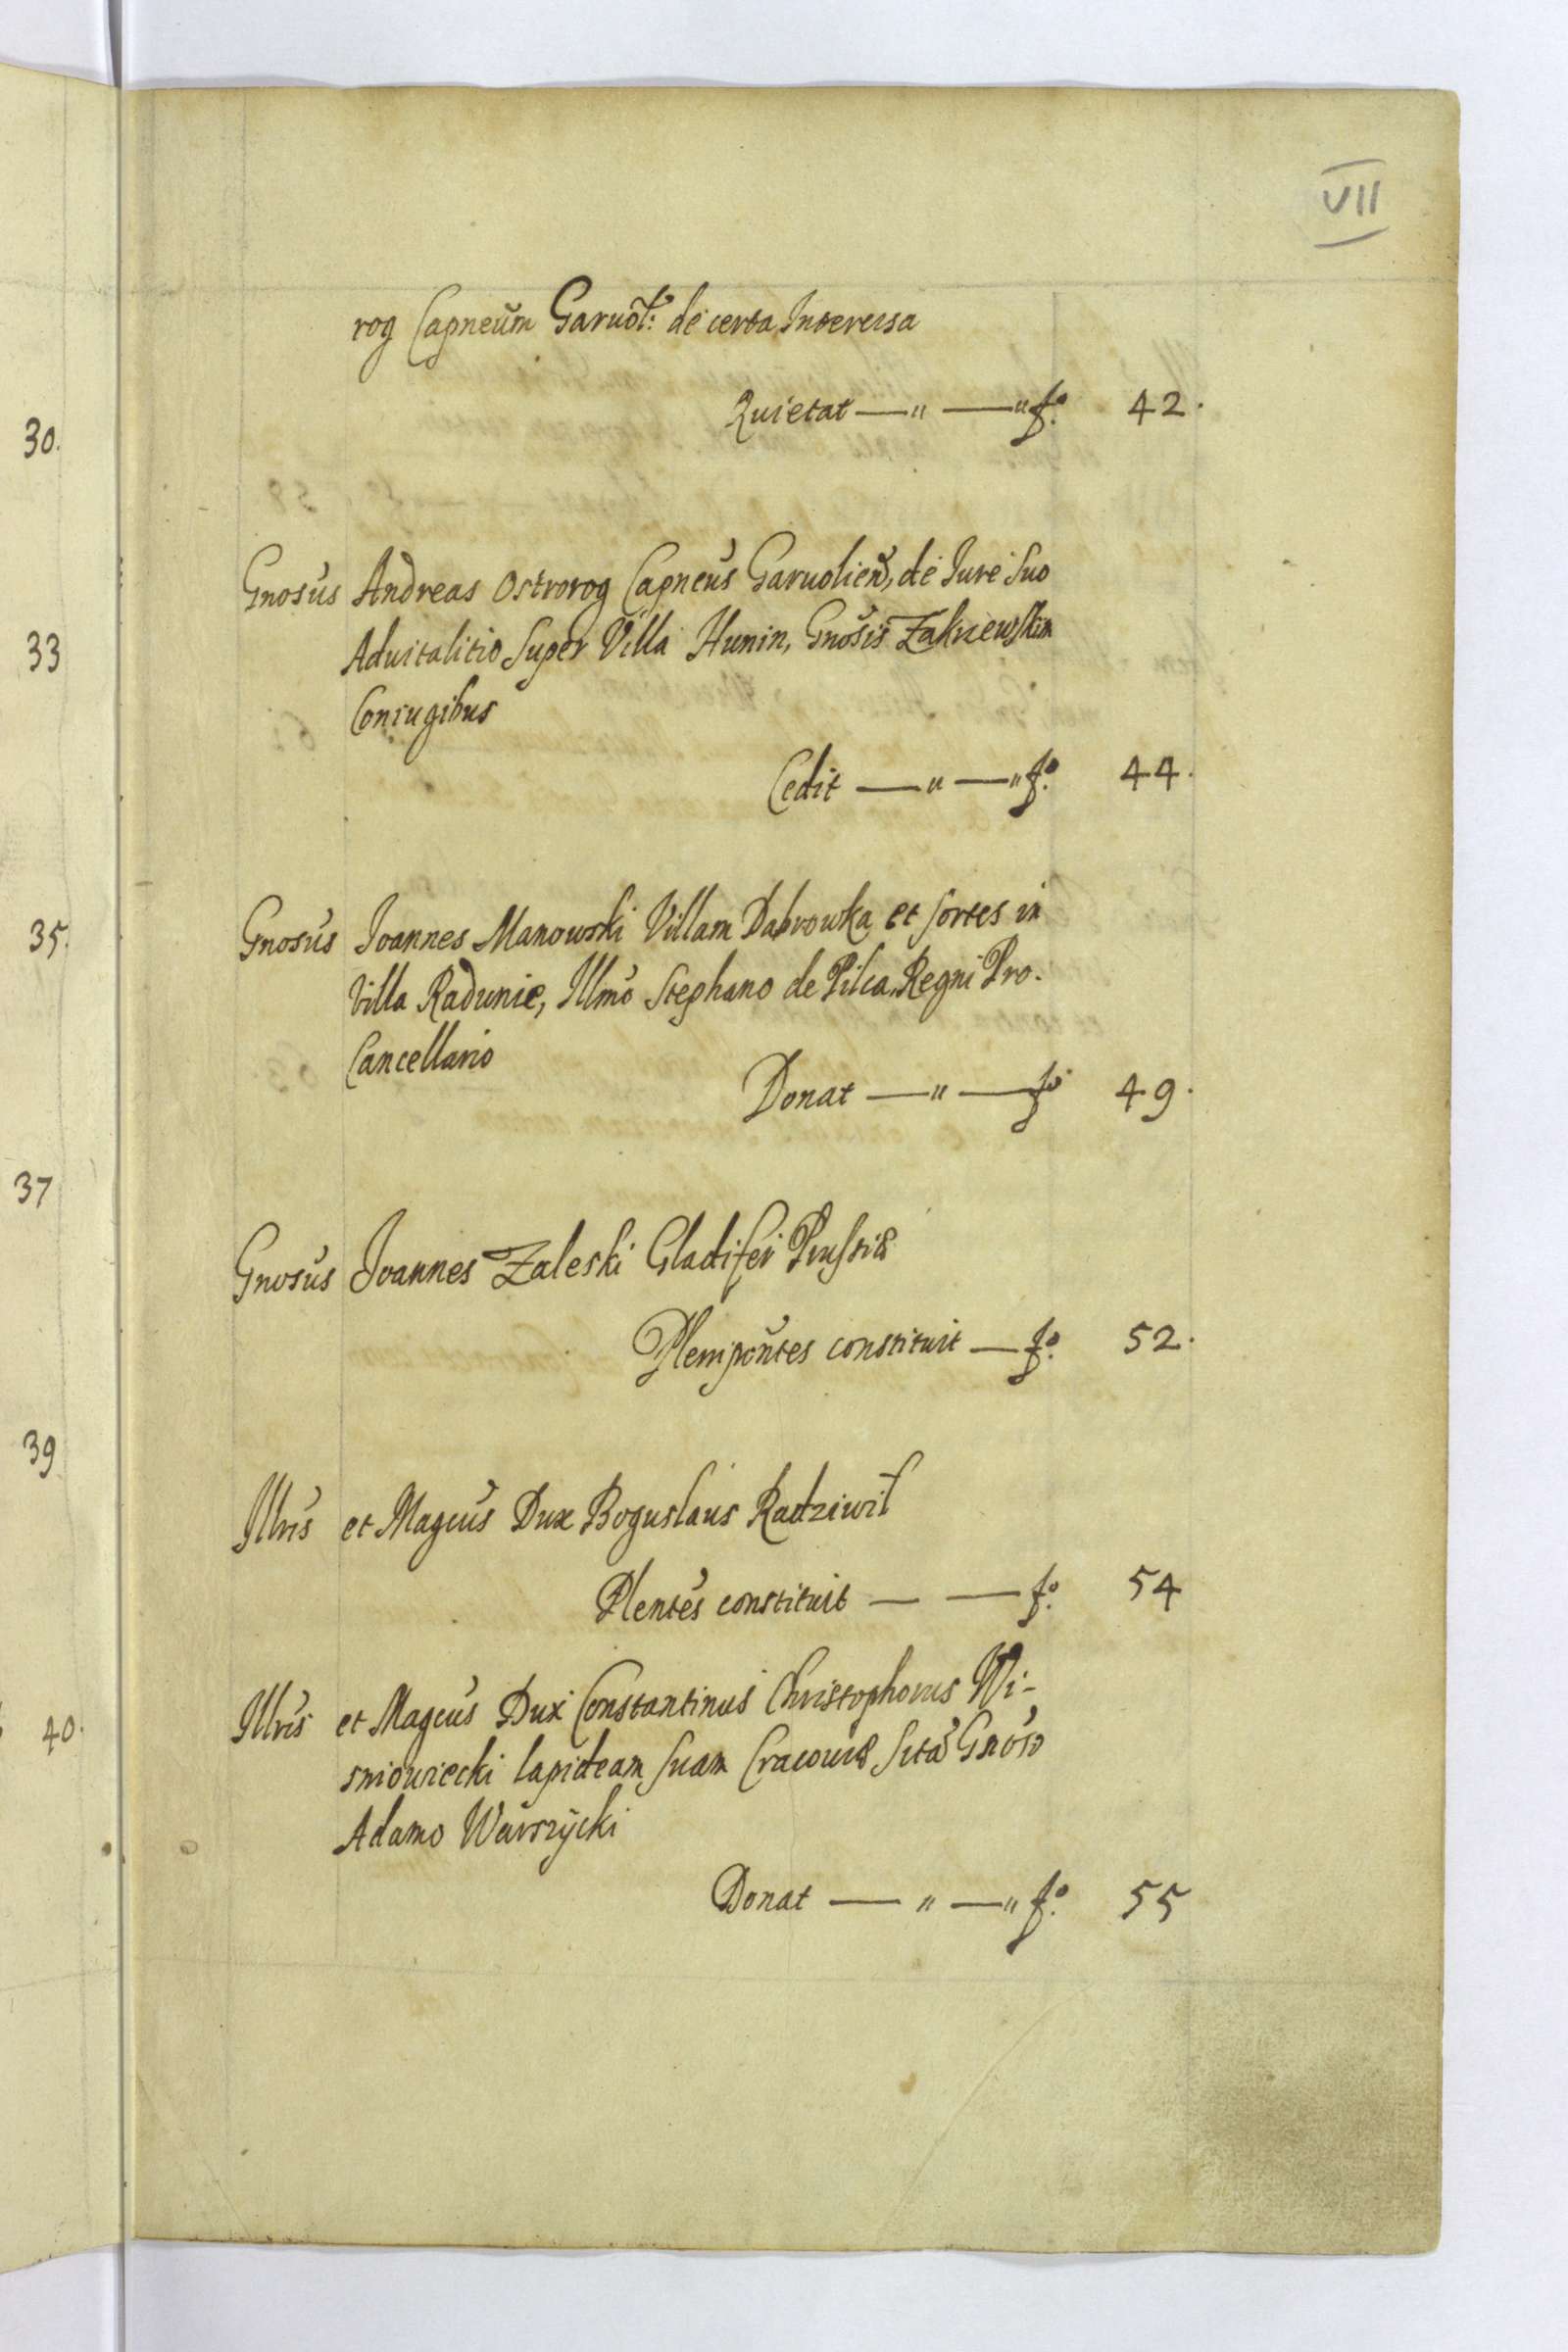 VII
rog Capneum Garuol: de certa Intercisa
Quietat —„ —„ fo. 42.
Gnosus Andreas Ostrorog Capneus Garuolien, de Iure Suo
Aduitalitio Super Villa Hunin, Gnosis Zakrzewskim
Coniugibus
Cedit —„ —„ fo. 44.
Gnosus Joannes Manowski Villam Dabrowka et sortes in
Villa Radunie, Illmo Stephano de Pilca, Regni Pro-
Cancellario
Donat —„ — fo 49.
Gnosus Joannes Zaleski Gladifer Prussiæ
Plenipontes constituit — fo. 52.
Illris et Magcus Dux Boguslaus Radziwil
Plentes constituit — — fo. 54
Illris et Magcus Dux Constantinus Christophorus Wi-
sniowiecki lapideam suam Cracouiæ Sita Gnoso
Adamo Warszycki
Donat — „ —„ fo. 55
30.
33
35.
37
39
40.